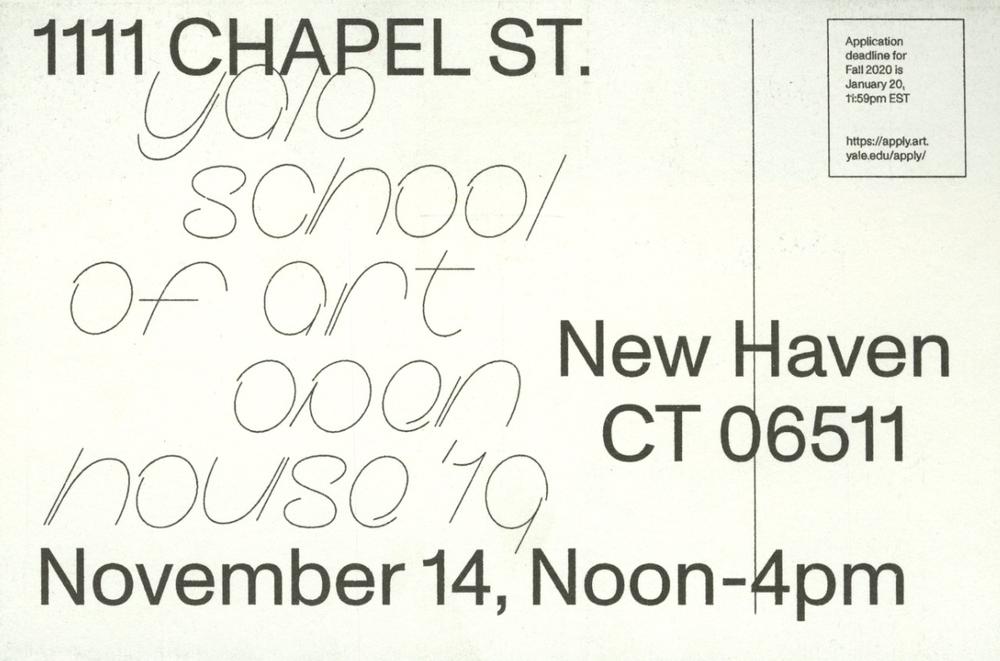 1111 CHAPEL ST.
yale
school
of art
open
house '19
New Haven
CT 06511
November 14, Noon-4pm
Application
deadline for
Fall 2020 is
January 20,
11:59pm EST
https://apply.art.
yale.edu/apply/